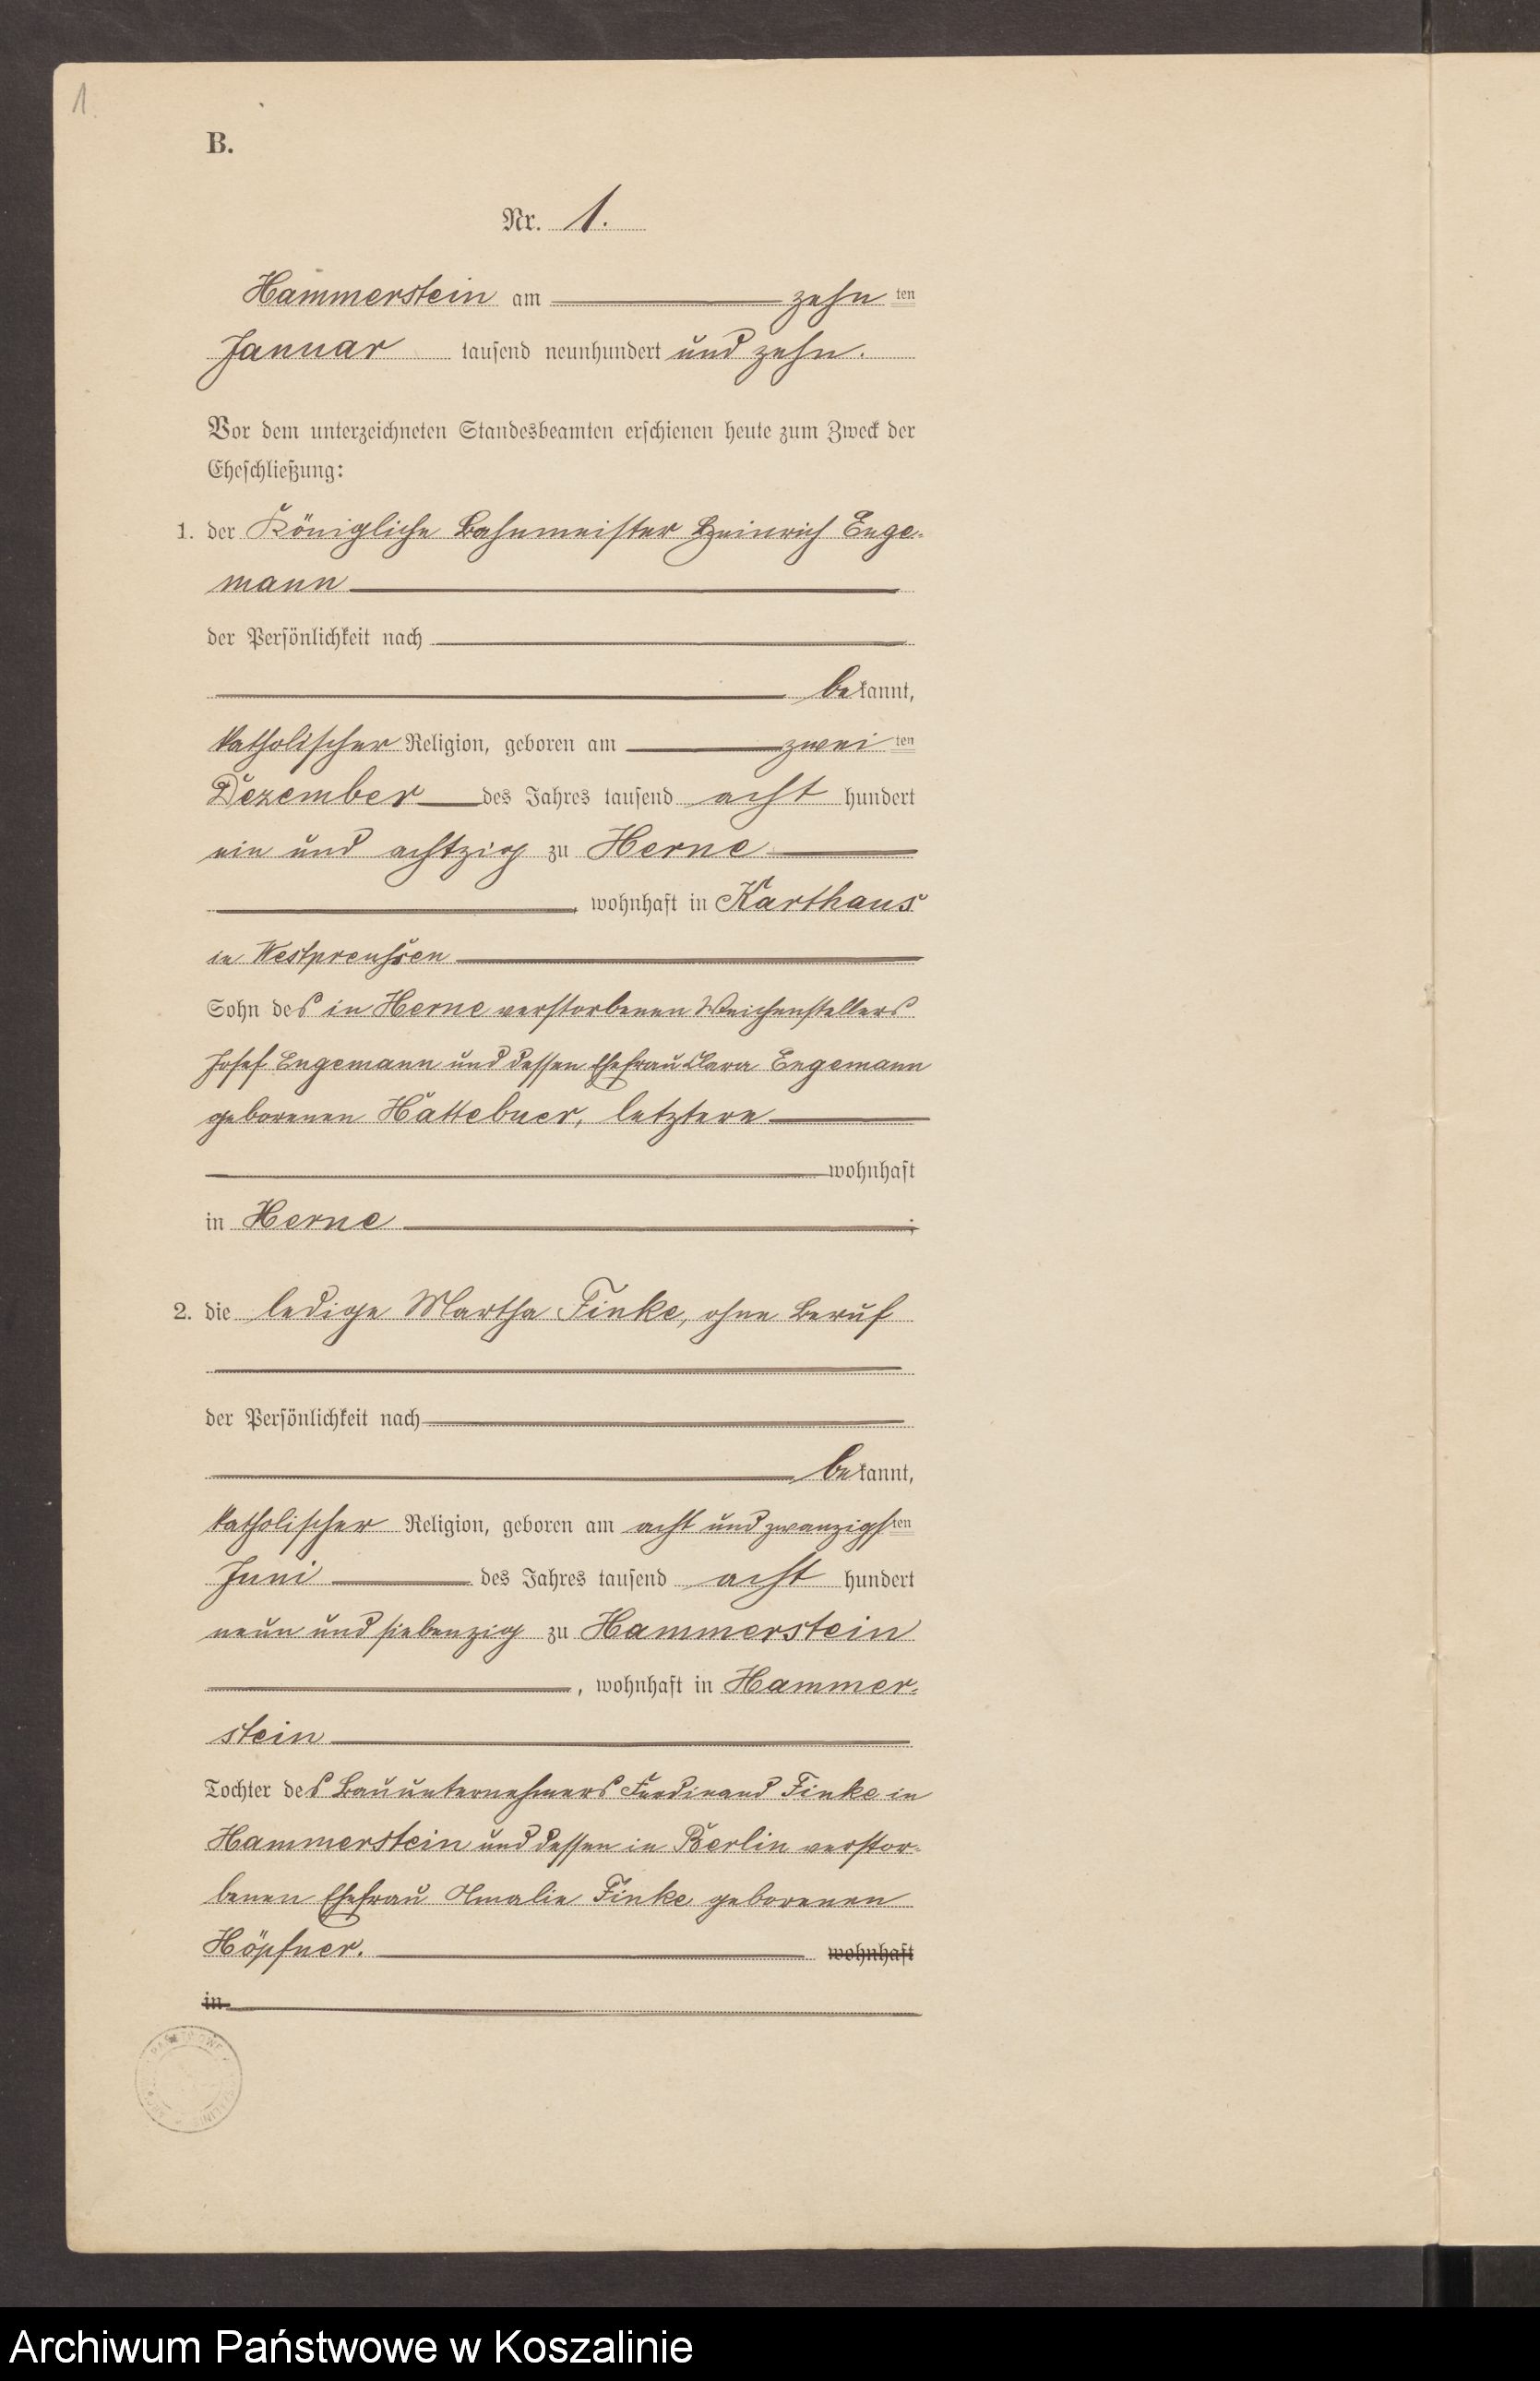 1.
B.
Nr. 1.
Hammerstein am zehn ten
Januar tausend neunhundert und zehn.
Vor dem unterzeichneten Standesbeamten erschienen heute zum Zweck der
Eheschließung:
1. der Königliche Bahnmeister Heinrich Enge-
mann
der Persönlichkeit nach
bekannt,
katholischer Religion, geboren am zwei ten
Dezember des Jahres tausend acht hundert
ein und achtzig zu Herne
, wohnhaft in Karthaus
in Westpreußen
Sohn des in Herne verstorbenen Weichenstellers
Josef Engemann und dessen Ehefrau Clara Engemann
geborenen Hattebuer, letztere
wohnhaft
in Herne ;
2. die ledige Martha Finke, ohne Beruf
der Persönlichkeit nach
bekannt,
katholischer Religion, geboren am acht und zwanzigsten
Juni des Jahres tausend acht hundert
neun und siebenzig zu Hammerstein
, wohnhaft in Hammer-
stein
Tochter des Bauunternehmers Ferdinand Finke in
Hammerstein und dessen in Berlin verstor-
benen Ehefrau Amalie Finke geborenen
Höpfner. wohnhaft
in
Archiwum Państwowe w Koszalinie